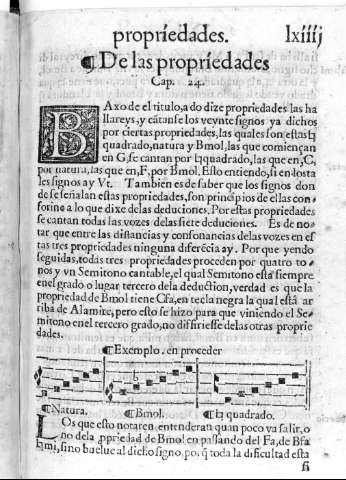 propriedades. lxiiij
¶ De las propriedades
Cap. 24.
BAxo de el titulo, a do dize propriedades las ha
llareys, y cãtanse los veynte signos ya dichos
por ciertas propriedades, las quales son estas ♮
quadrado, natura y Bmol, las que comiençan
en G, se cantan por ♮ quadrado, las que en, C,
por natura, las que en, F, por Bmol. Esto entiendo, si en los ta
les signos ay Vt. Tambien es de saber que los signos don
de se señalan estas propriedades, son principios de ellas con-
forme a lo que dixe de las deduciones. Por estas propriedades
se cantan todas las vozes de las siete deduciones. Es de no-
tar que entre las distancias y consonancias de las vozes en es
tas tres propriedades ninguna diferẽcia ay. Por que yendo
seguidas, todas tres propriedades proceden por quatro to-
nos y vn Semitono cantable, el qual Semitono esta siempre
en el grado o lugar tercero de la deduction, verdad es que la
propiedad de Bmol tiene Cfa, en tecla negra la qual está ar
riba de Alamire, pero esto se hizo para que viniendo el Se-
mitono en el tercero grado, no difiriesse de las otras proprie
dades.
¶ Exemplo. en proceder
¶ Natura. ¶ Bmol. ¶ ♮ quadrado.
LOs que esto notaren entenderan quan poco va salir, o
no de la ꝓpriedad de Bmol en passando del Fa, de Bfa
♮mi, sino buelue al dicho signo. po. q̃ toda la dificultad esta
si